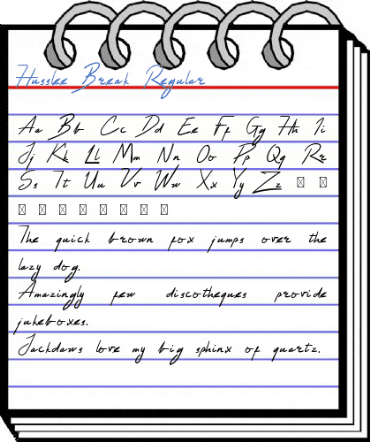 Husslee Break Regular
Aa Bb Cc Dd Ee Ff Gg Hh Ii
Jj Kk Ll Mm Nn Oo Pp Qq Rr
Ss Tt Uu Vv Ww Xx Yy Zz
The quick brown fox jumps over the
lazy dog.
Amazingly few discotheques provide
jukeboxes.
Jackdaws love my big sphinx of quartz.